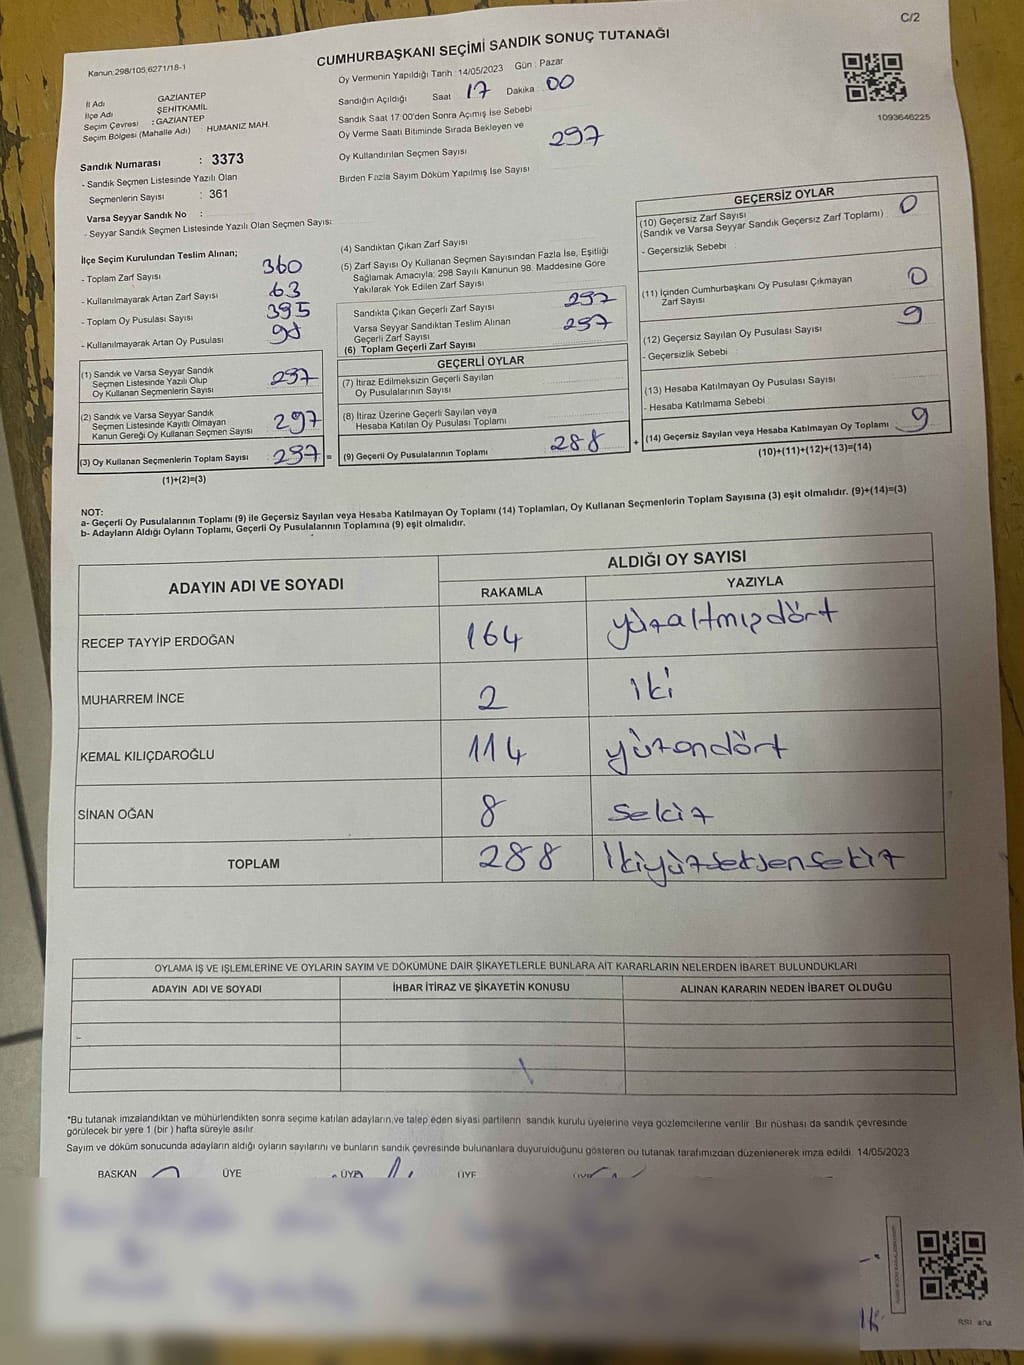 C/2
Kanun 298/105,6271/18-1
CUMHURBAŞKANI SEÇİMİ SANDIK SONUÇ TUTANAĞI
Oy Vermenin Yapıldığı Tarih :14/05/2023 Gün : Pazar
Sandığın Açıldığı Saat 17 Dakika 00
Sandık Saat 17:00'den Sonra Açımış İse Sebebi
Oy Verme Saati Bitiminde Sırada Bekleyen ve
Oy Kullandırılan Seçmen Sayısı 297
Birden Fazla Sayım Döküm Yapılmış İse Sayısı
1093646225
İl Adı GAZİANTEP
İlçe Adı ŞEHİTKAMİL
Seçim Çevresi : GAZİANTEP
Seçim Bölgesi (Mahalle Adı) : HUMANIZ MAH.
Sandık Numarası : 3373
- Sandık Seçmen Listesinde Yazılı Olan
Seçmenlerin Sayısı : 361
Varsa Seyyar Sandık No :
- Seyyar Sandık Seçmen Listesinde Yazılı Olan Seçmen Sayısı:
İlçe Seçim Kurulundan Teslim Alınan;
- Toplam Zarf Sayısı 360
- Kullanılmayarak Artan Zarf Sayısı 63
- Toplam Oy Pusulası Sayısı 395
- Kullanılmayarak Artan Oy Pusulası
(1) Sandık ve Varsa Seyyar Sandık
Seçmen Listesinde Yazılı Olup
Oy Kullanan Seçmenlerin Sayısı 297
(2) Sandık ve Varsa Seyyar Sandık
Seçmen Listesinde Kayıtlı Olmayan
Kanun Gereği Oy Kullanan Seçmen Sayısı 297
(3) Oy Kullanan Seçmenlerin Toplam Sayısı 297 =
(1)+(2)=(3)
(4) Sandıktan Çıkan Zarf Sayısı
(5) Zarf Sayısı Oy Kullanan Seçmen Sayısından Fazla İse, Eşitliği
Sağlamak Amacıyla; 298 Sayılı Kanunun 98. Maddesine Göre
Yakılarak Yok Edilen Zarf Sayısı
Sandıkta Çıkan Geçerli Zarf Sayısı 297
Varsa Seyyar Sandıktan Teslim Alınan
Geçerli Zarf Sayısı 297
(6) Toplam Geçerli Zarf Sayısı
GEÇERLİ OYLAR
(7) İtiraz Edilmeksizin Geçerli Sayılan
Oy Pusulalarının Sayısı
(8) İtiraz Üzerine Geçerli Sayılan veya
Hesaba Katılan Oy Pusulası Toplamı
(9) Geçerli Oy Pusulalarının Toplamı 288 +
GEÇERSİZ OYLAR
(10) Geçersiz Zarf Sayısı
(Sandık ve Varsa Seyyar Sandık Geçersiz Zarf Toplamı) 0
- Geçersizlik Sebebi
(11) İçinden Cumhurbaşkanı Oy Pusulası Çıkmayan
Zarf Sayısı 0
(12) Geçersiz Sayılan Oy Pusulası Sayısı 9
- Geçersizlik Sebebi
(13) Hesaba Katılmayan Oy Pusulası Sayısı
- Hesaba Katılmama Sebebi
(14) Geçersiz Sayılan veya Hesaba Katılmayan Oy Toplamı 9
(10)+(11)+(12)+(13)=(14)
NOT:
a- Geçerli Oy Pusulalarının Toplamı (9) ile Geçersiz Sayılan veya Hesaba Katılmayan Oy Toplamı (14) Toplamları, Oy Kullanan Seçmenlerin Toplam Sayısına (3) eşit olmalıdır. (9)+(14)=(3)
b- Adayların Aldığı Oyların Toplamı, Geçerli Oy Pusulalarının Toplamına (9) eşit olmalıdır.
ADAYIN ADI VE SOYADI ALDIĞI OY SAYISI
RAKAMLA YAZIYLA
RECEP TAYYİP ERDOĞAN 164 yüzaltmışdört
MUHARREM İNCE 2 iki
KEMAL KILIÇDAROĞLU 114 yüzondört
SİNAN OĞAN 8 sekiz
TOPLAM 288 ikiyüzseksensekiz
OYLAMA İŞ VE İŞLEMLERİNE VE OYLARIN SAYIM VE DÖKÜMÜNE DAİR ŞİKAYETLERLE BUNLARA AİT KARARLARIN NELERDEN İBARET BULUNDUKLARI
ADAYIN ADI VE SOYADI İHBAR İTİRAZ VE ŞİKAYETİN KONUSU ALINAN KARARIN NEDEN İBARET OLDUĞU
*Bu tutanak imzalandıktan ve mühürlendikten sonra seçime katılan adayların,ve talep eden siyasi partilerin sandık kurulu üyelerine veya gözlemcilerine verilir. Bir nüshası da sandık çevresinde
görülecek bir yere 1 (bir ) hafta süreyle asılır.
Sayım ve döküm sonucunda adayların aldığı oyların sayılarını ve bunların sandık çevresinde bulunanlara duyurulduğunu gösteren bu tutanak tarafımızdan düzenlenerek imza edildi. 14/05/2023
BAŞKAN ÜYE ÜYE ÜYE